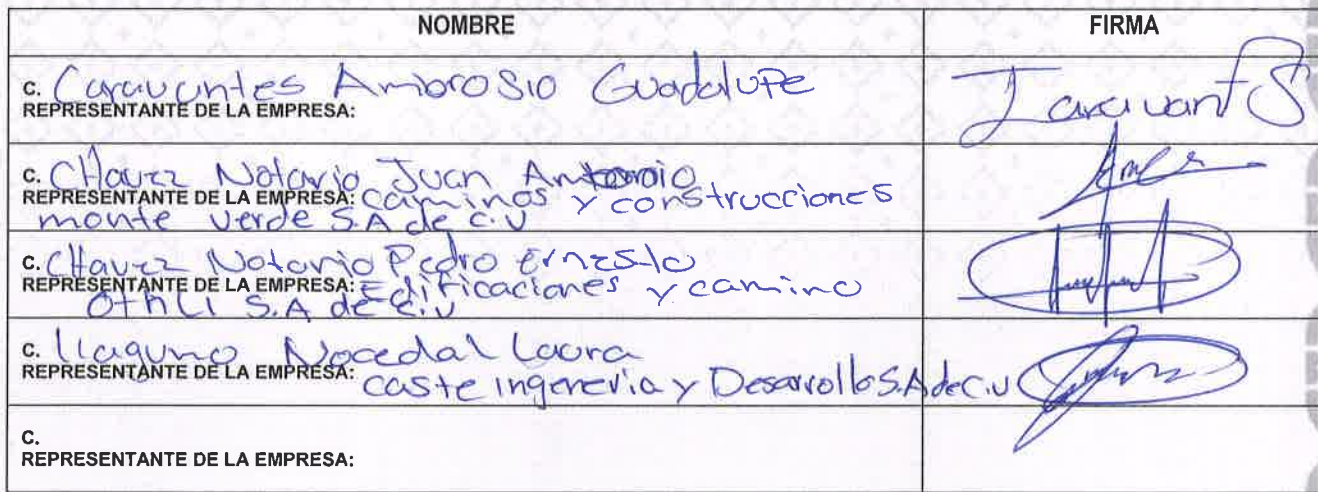 NOMBRE FIRMA
C. Caravantes Ambrosio Guadalupe
REPRESENTANTE DE LA EMPRESA:
C. CHavez Notario Juan Antonio
REPRESENTANTE DE LA EMPRESA: caminos y construcciones
monte verde S.A de C.V
C. CHavez Notario Pedro Ernesto
REPRESENTANTE DE LA EMPRESA: Edificaciones y camino
Othli S.A de C.V
C. llaguno Nocedal Laura
REPRESENTANTE DE LA EMPRESA: caste ingeneria y Desarrollo S.A de C.V
C.
REPRESENTANTE DE LA EMPRESA: